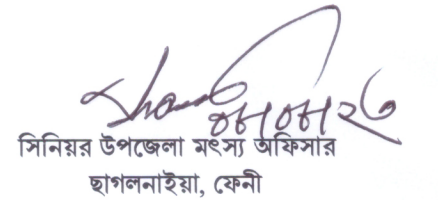 সিনিয়র উপজেলা মৎস্য অফিসার
ছাগলনাইয়া, ফেনী